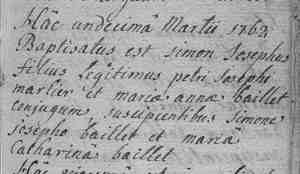 Hâc undecimâ Martii 1762
Baptisatus est simon Josephus
filius legitimus petri Josephi
marlier et mariæ annæ baillet
conjugum, suscipientibus simone
josepho baillet et mariâ
Catharinâ baillet